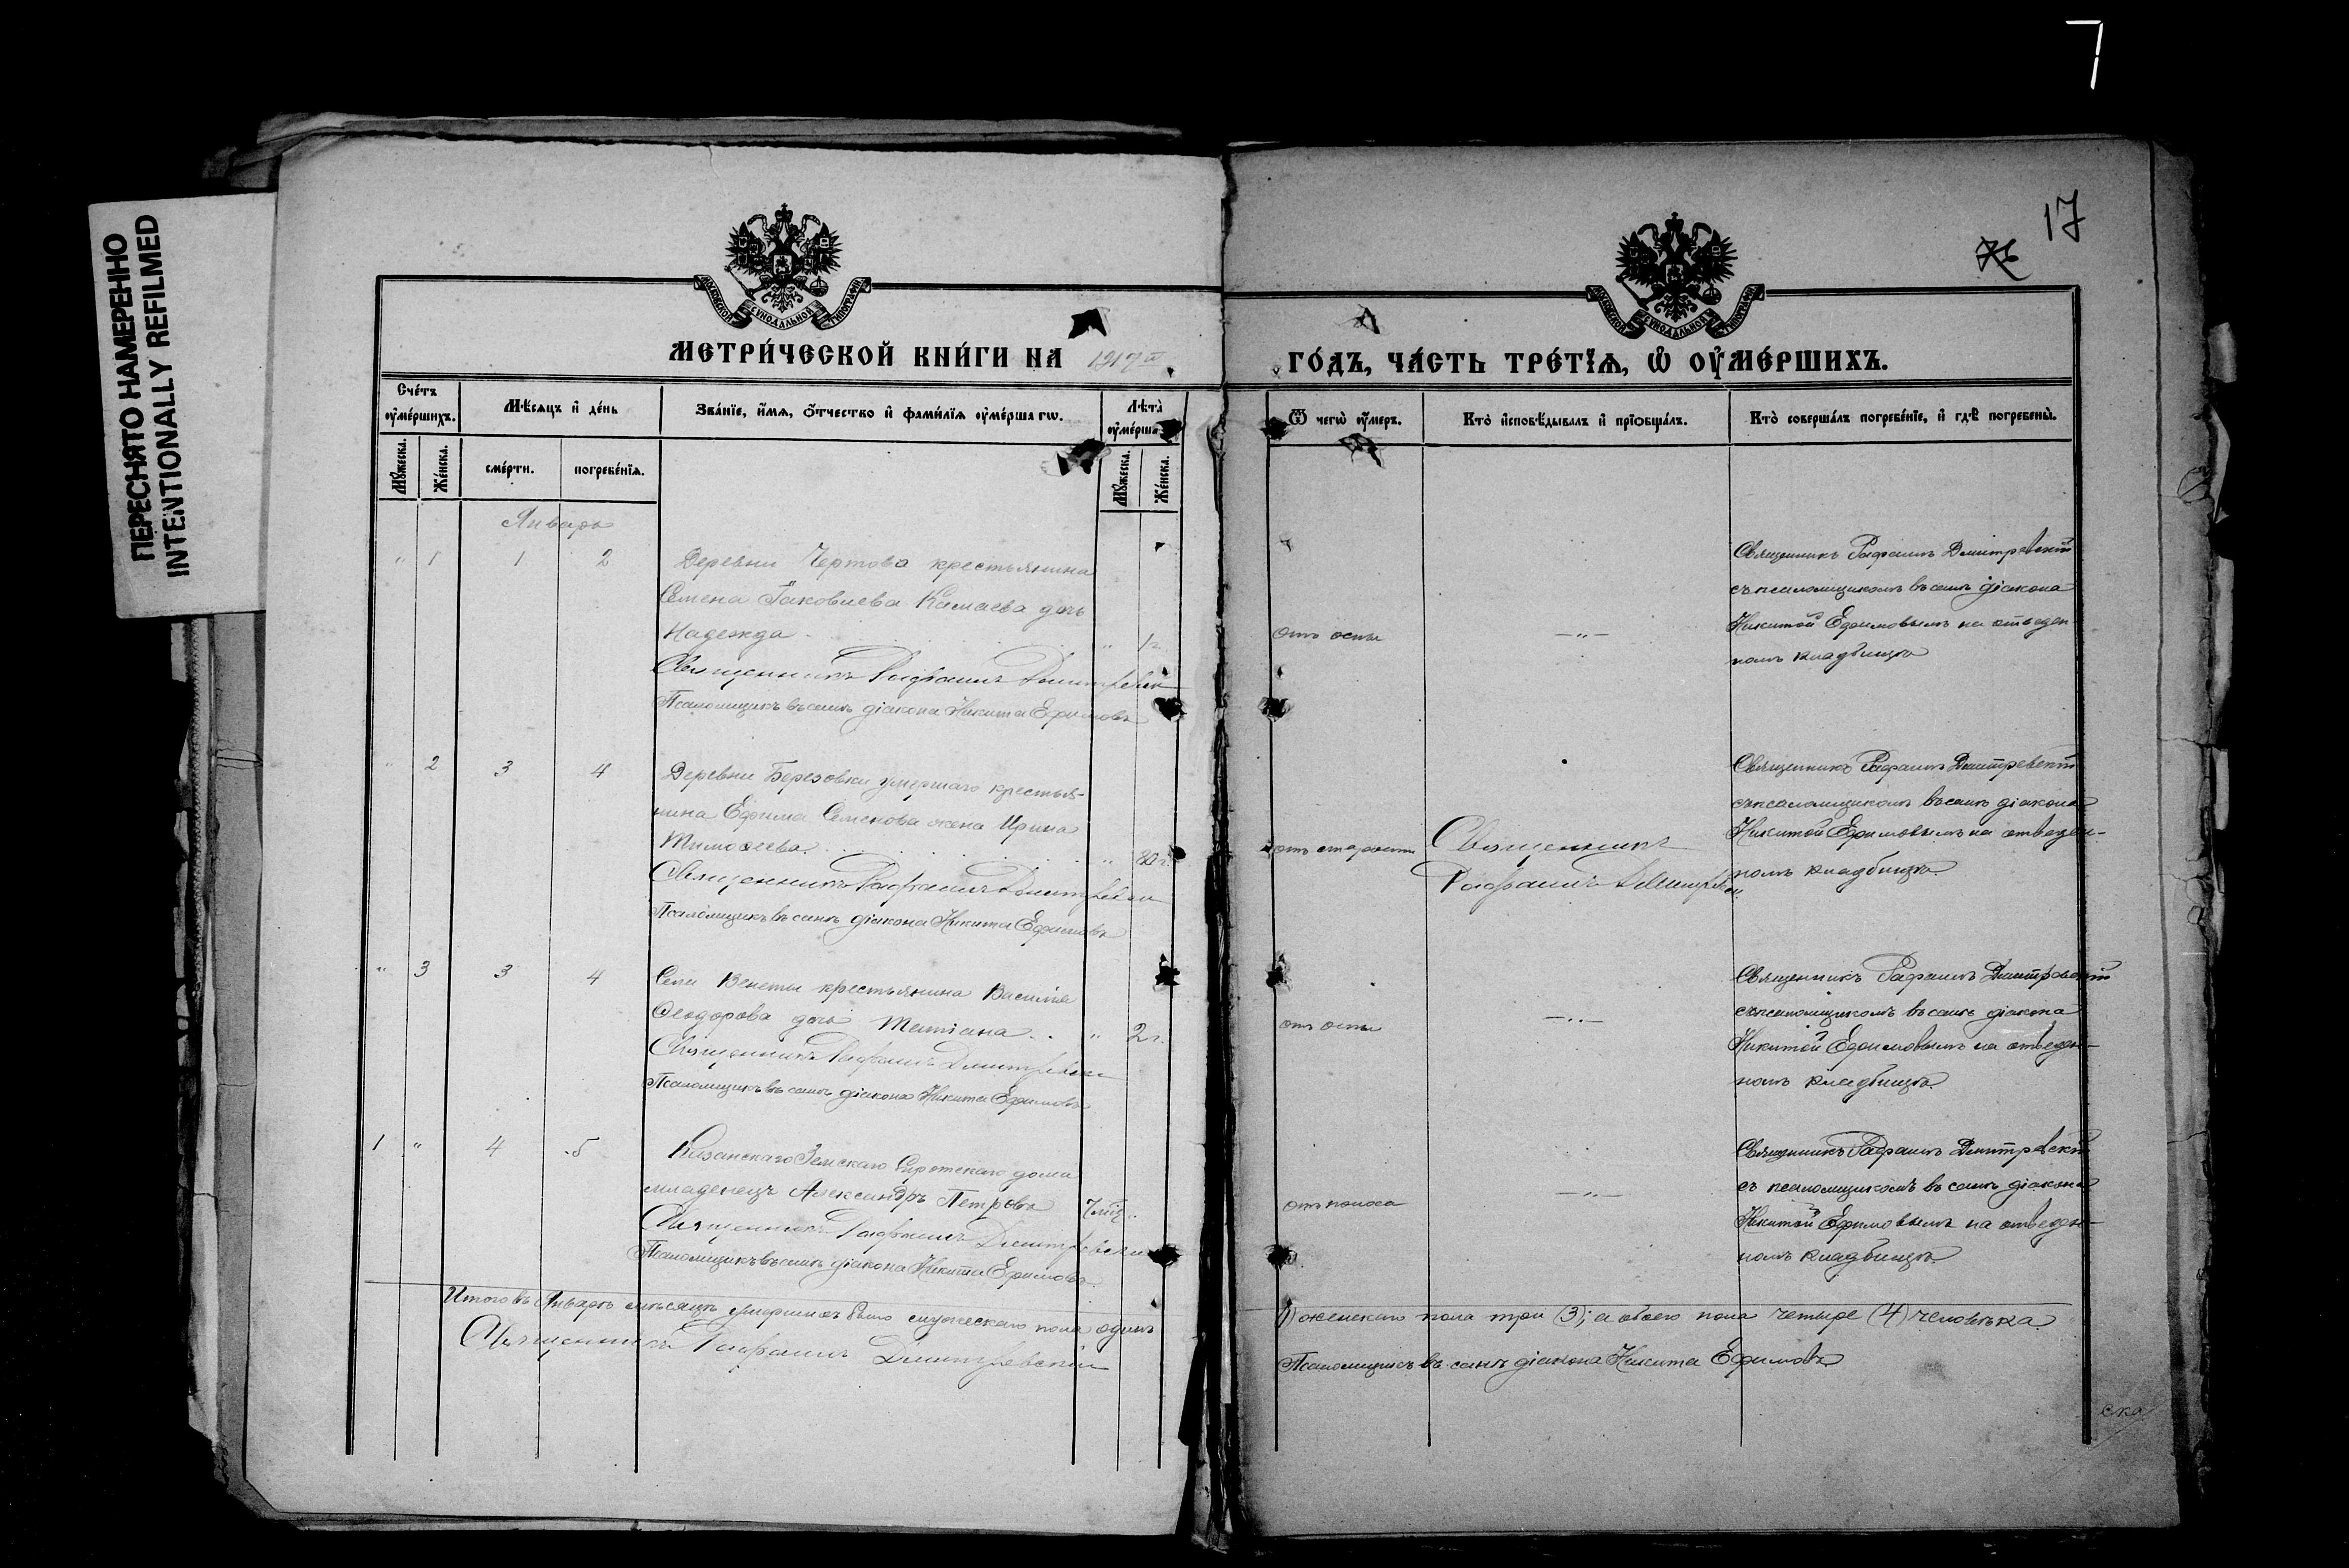 7
ПЕРЕСНЯТО НАМЕРЕННО
INTENTIONALLY REFILMED
17
МОСКОВСКОЙ СУНОДАЛЬНОЙ ТИПОГРАФІИ
МОСКОВСКОЙ СУНОДАЛЬНОЙ ТИПОГРАФІИ
МЕТРИ́ЧЕСКОЙ КНИ́ГИ НА 1917 й
ГО́ДЪ, ЧА́СТЬ ТРЕ́ТЇѦ, Ѡ҆ ОУ҆МЕ́РШИХЪ.
Сче́тъ оу҆ме́ршихъ.
Мѣ́сѧцъ и҆ де́нь
Зва́нїе, и҆́мѧ, ѻ҆́тчество и҆ фами́лїѧ оу҆ме́ршагѡ.
Лѣ́та̀ оу҆ме́рша
Ѿ чегѡ̀ оу҆́меръ.
Кто̀ и҆сповѣ́дывалъ и҆ прїѻбща́лъ.
Кто̀ соверша́лъ погребе́нїе, и҆ гдѣ̀ погребены̀.
Мꙋ́жеска.
Же́нска.
сме́рти.
погребе́нїѧ.
Мꙋ́жеска.
Же́нска.
Январь
" 1 1 2 Деревни Чертова крестьянина
Семена Іаковлева Камаева дочь
Надежда " 1 г.
Священникъ Рафаилъ Дмитревск
Псаломщикъ въ санѣ діакона Никита Ефимовъ
отъ оспы
—"—
Священникъ Рафаилъ Дмитревскій
съ псаломщикомъ въ санѣ діакона
Никитой Ефимовымъ на отведен-
номъ кладбищѣ
" 2 3 4 Деревни Березовки умершаго крестья-
нина Ефима Семенова жена Ирина
Тимоѳеева " 80 г.
Священникъ Рафаилъ Дмитревскі
Псаломщикъ въ санѣ діакона Никита Ефимовъ
отъ старости
Священникъ
Рафаилъ Дмитревскі
Священникъ Рафаилъ Дмитревскій
съ псаломщикомъ въ санѣ діакона
Никитой Ефимовымъ на отведен-
номъ кладбищѣ.
" 3 3 4 Села Венеты крестьянина Василія
Ѳеодорова дочь Татіана " 2 г.
Священникъ Рафаилъ Дмитревскі
Псаломщикъ въ санѣ діакона Никита Ефимовъ
отъ оспы
—"—
Священникъ Рафаилъ Дмитревскій
съ псаломщикомъ въ санѣ діакона
Никитой Ефимовымъ на отведен-
номъ кладбищѣ.
1 " 4 5 Казанскаго Земскаго Сиротскаго дома
младенецъ Александръ Петровъ 7 мѣс. "
Священникъ Рафаилъ Дмитревскі
Псаломщикъ въ санѣ діакона Никита Ефимовъ.
отъ поноса
—"—
Священникъ Рафаилъ Дмитревскій
съ псаломщикомъ въ санѣ діакона
Никитой Ефимовымъ на отведен-
номъ кладбищѣ.
Итого въ Январѣ мѣсяцѣ умершихъ было мужескаго пола одинъ
(1) женскаго пола три (3); а обоего пола четыре (4) человѣка.
Священникъ Рафаилъ Дмитревскій
Псаломщикъ въ санѣ діакона Никита Ефимовъ
ска